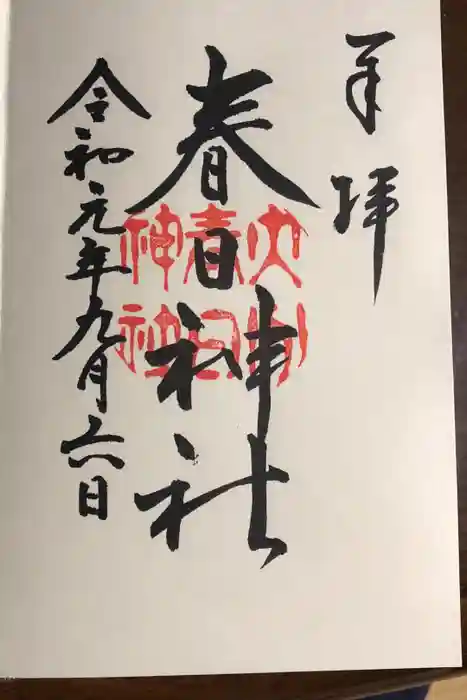 奉拝
春日神社
令和元年九月六日
春日
神社